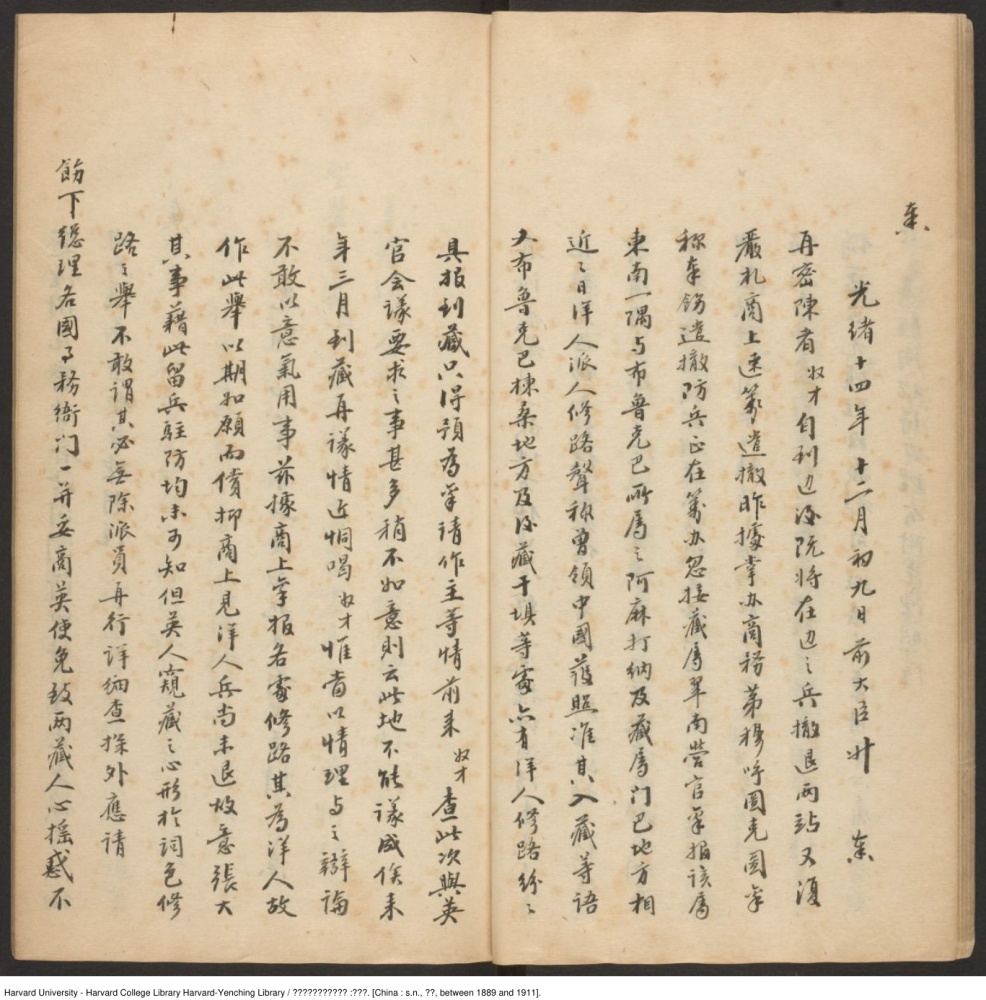 奏
光緒十四年十二月初九日前大臣升 奏
再密陳者奴才自到边後既将在边之兵撤退两站又復
嚴札商上速籌遣撤昨據掌办商務第穆呼圖克圖稟
称奉飭遣撤防兵正在籌办忽接藏属翠南营官稟报該属
東南一隅与布魯克巴所属之阿麻打納及藏属门巴地方相
近近日洋人派人修路聲称曾领中國護照准其入藏等語
又布魯克巴棟桑地方及後藏干垻等處亦有洋人修路纷纷
具报到藏只得预為稟请作主等情前来奴才查此次與英
官会議要求之事甚多稍不如意則云此地不能議成俟来
年三月到藏再議情近恫喝奴才惟當以情理与之辯論
不敢以意氣用事兹據商上稟报各處修路其為洋人故
作此舉以期如願而償抑商上見洋人兵尚未退故意張大
其事藉此留兵駐防均未可知但英人窺藏之心形於詞色修
路之舉不敢謂其必無除派員再行详细查探外應请
飭下總理各國事務衙门一并妥商英使免致两藏人心摇惑不
Harvard University - Harvard College Library Harvard-Yenching Library / ??????????? :???. [China : s.n., ??, between 1889 and 1911].